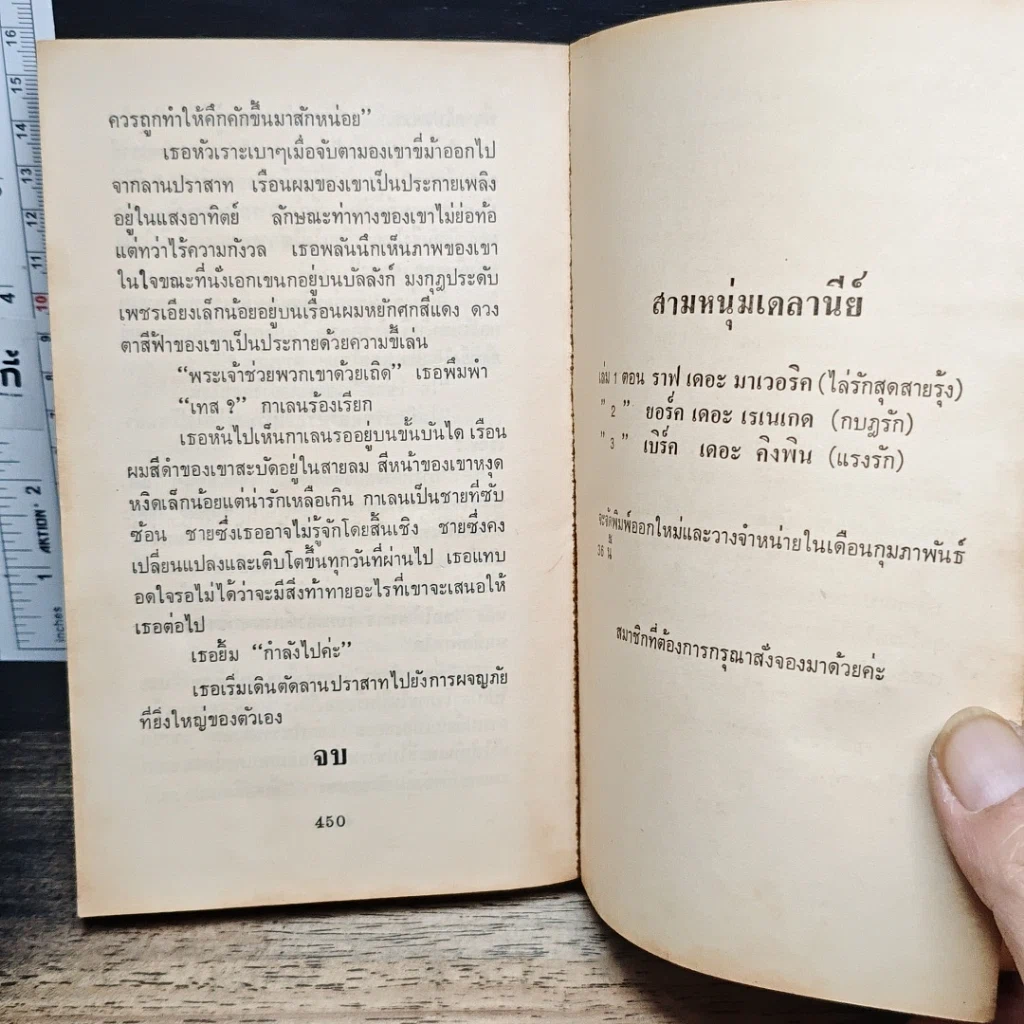 ควรถูกทำให้คึกคักขึ้นมาสักหน่อย”
เธอหัวเราะเบาๆเมื่อจับตามองเขาขี่ม้าออกไป
จากลานปราสาท เรือนผมของเขาเป็นประกายเพลิง
อยู่ในแสงอาทิตย์ ลักษณะท่าทางของเขาไม่ย่อท้อ
แต่ทว่าไร้ความกังวล เธอพลันนึกเห็นภาพของเขา
ในใจขณะที่นั่งเอกเขนกอยู่บนบัลลังก์ มงกุฎประดับ
เพชรเอียงเล็กน้อยอยู่บนเรือนผมหยักศกสีแดง ดวง
ตาสีฟ้าของเขาเป็นประกายด้วยความขี้เล่น
“พระเจ้าช่วยพวกเขาด้วยเถิด” เธอพึมพำ
“เทส ?” กาเลนร้องเรียก
เธอหันไปเห็นกาเลนรออยู่บนขั้นบันได เรือน
ผมสีดำของเขาสะบัดอยู่ในสายลม สีหน้าของเขาหงุด
หงิดเล็กน้อยแต่น่ารักเหลือเกิน กาเลนเป็นชายที่ซับ
ซ้อน ชายซึ่งเธออาจไม่รู้จักโดยสิ้นเชิง ชายซึ่งคง
เปลี่ยนแปลงและเติบโตขึ้นทุกวันที่ผ่านไป เธอแทบ
อดใจรอไม่ได้ว่าจะมีสิ่งท้าทายอะไรที่เขาจะเสนอให้
เธอต่อไป
เธอยิ้ม “กำลังไปค่ะ”
เธอเริ่มเดินตัดลานปราสาทไปยังการผจญภัย
ที่ยิ่งใหญ่ของตัวเอง
จบ
450
สามหนุ่มเดลานีย์
เล่ม 1 ตอน ราฟ เดอะ มาเวอริค (ไล่รักสุดสายรุ้ง)
" 2 " ยอร์ค เดอะ เรเนเกด (กบฎรัก)
" 3 " เบิร์ค เดอะ คิงพิน (แรงรัก)
จะจัดพิมพ์ออกใหม่และวางจำหน่ายในเดือนกุมภาพันธ์
36 นี้
สมาชิกที่ต้องการกรุณาสั่งจองมาด้วยค่ะ
16
15
14
13
12
11
10
9
4
2
1
AKTION
inches